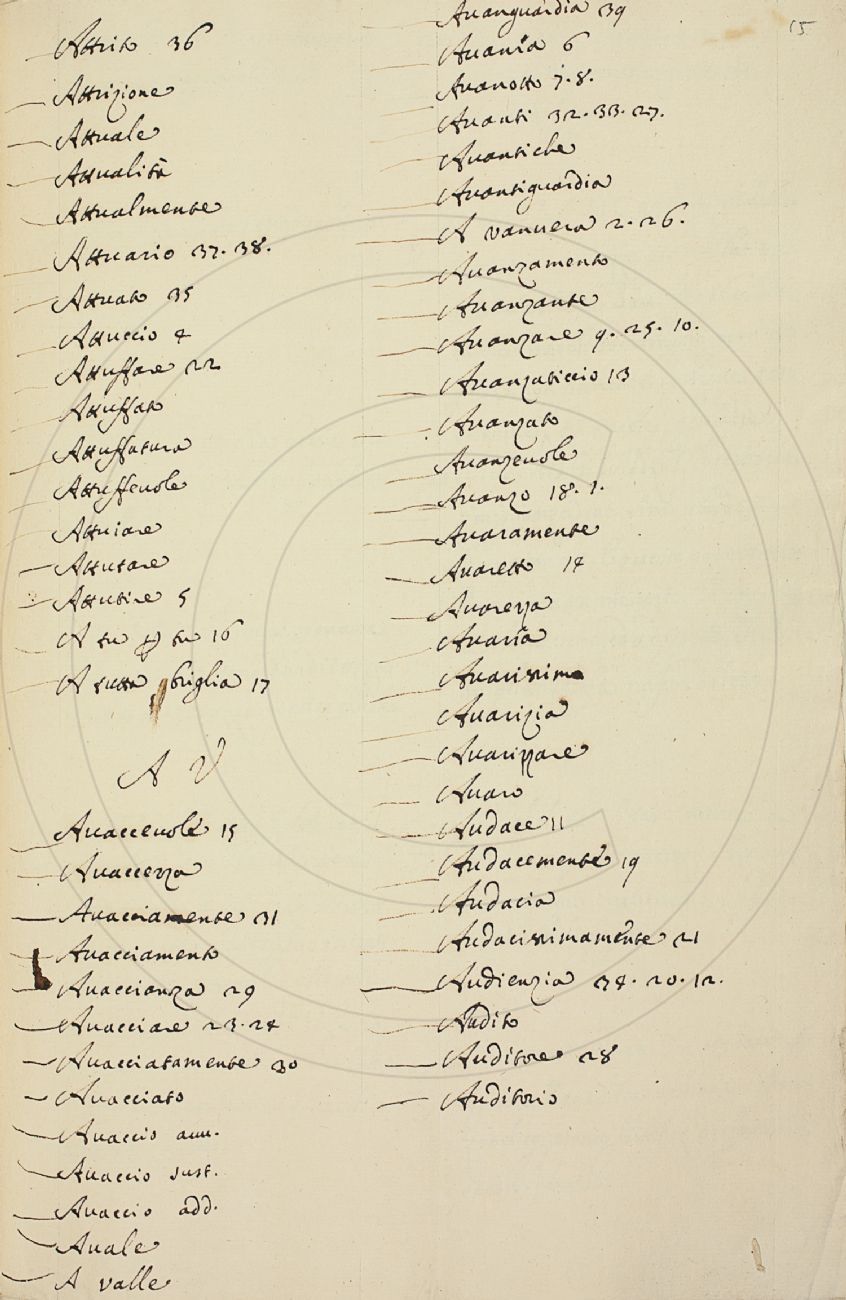 15
Attrito 36
Attrizione
Attuale
Attualità
Attualmente
Attuario 37. 38.
Attuato 35
Attuccio 4
Attuffare 22
Attuffato
Attuffatura
Attuffeuole
Attuiare
Attutare
Attutire 5
A tu p tu 16
A tutta briglia 17
A V
Auacceuole 15
Auaccezza
Auacciamente 31
Auacciamento
Auaccianza 29
Auacciare 23. 24
Auacciatamente 30
Auacciato
Auaccio auu.
Auaccio sust.
Auaccio add.
Auale
A valle
Auanguardia 39
Auanía 6
Auanotto 7. 8.
Auanti 32. 33. 27.
Auantiche
Auantiguardia
A vanuera 2. 26.
Auanzamento
Auanzante
Auanzare 9. 25. 10.
Auanzaticcio 13
Auanzato
Auanzeuole
Auanzo 18. 1.
Auaramente
Auaretto 14
Auarezza
Auaría
Auarissimo
Auarizia
Auarizzare
Auaro
Audace 11
Audacemente 19
Audacia
Audacissimamente 21
Audienzia 34. 20. 12.
Audito
Auditore 28
Auditorio